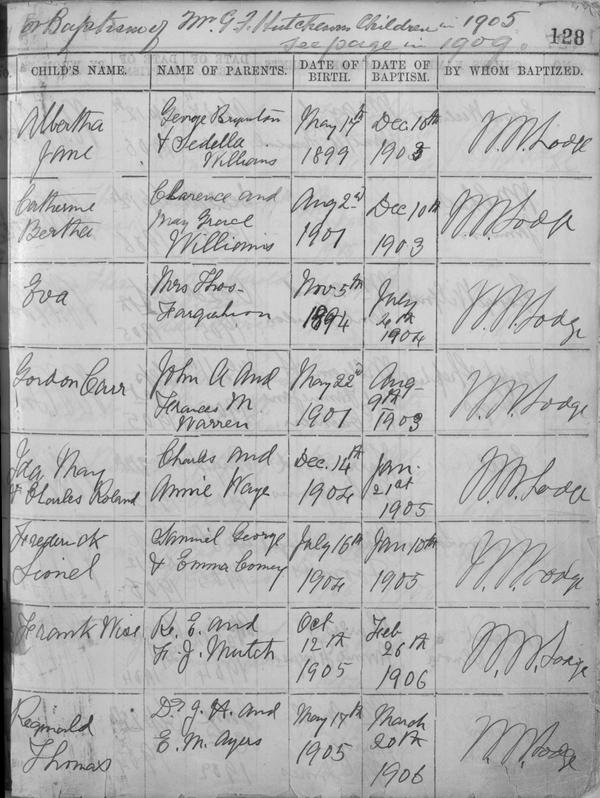 For Baptism of Mr G. F. Hutcheson Children in 1905
See page in 1909.
128
NO. CHILD'S NAME. NAME OF PARENTS. DATE OF BIRTH. DATE OF BAPTISM. BY WHOM BAPTIZED.
Albertha George Brynton May 17th Dec 10th W. W. Lodge
Jane & Sedella 1899 1903
Williams
Catherine Clarence and Aug 2nd Dec 10th W. W. Lodge
Bertha May Grace 1901 1903
Williams
Eva Mrs Thos- Nov 5th July W. W. Lodge
Farquhson 1894 26th
1904
Gordon Carr John A and May 22nd Aug- W. W. Lodge
Frances M. 1901 9th
Warren 1903
Ida May Charles and Dec. 14th Jan. W. W. Lodge
& Charles Roland Annie Waye 1904 21st
1905
Frederick Samuel George July 16th Jan 10th W. W. Lodge
Lionel & Emma Comey 1904 1905
Frank Wise R. E. and Oct Feb W. W. Lodge
F. J. Mutch 12th 26th
1905 1906
Reginald Dr J. A. and May 17th March W. W. Lodge
Thomas E. M. Ayers 1905 20th
1906